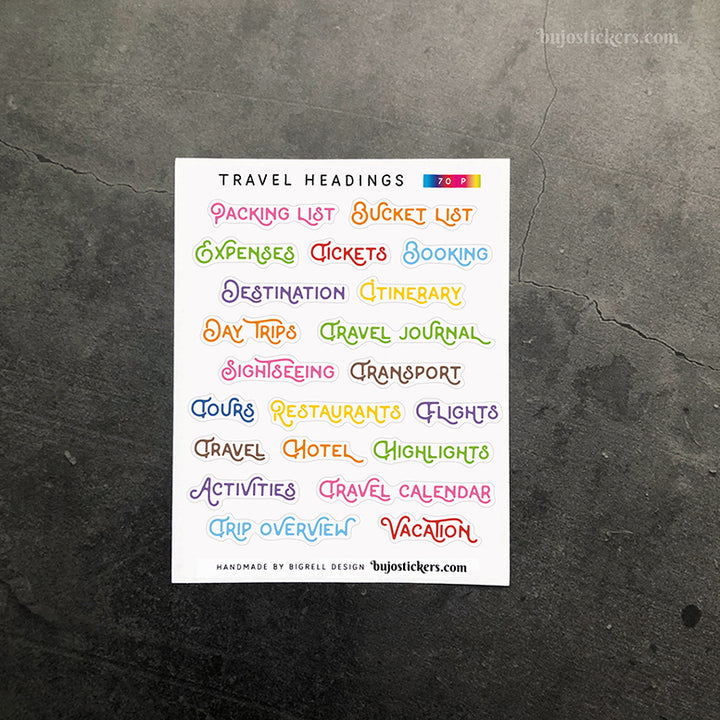 bujostickers.com
TRAVEL HEADINGS 70 P
PACKING LIST BUCKET LIST
EXPENSES TICKETS BOOKING
DESTINATION ITINERARY
DAY TRIPS TRAVEL JOURNAL
SIGHTSEEING TRANSPORT
TOURS RESTAURANTS FLIGHTS
TRAVEL HOTEL HIGHLIGHTS
ACTIVITIES TRAVEL CALENDAR
TRIP OVERVIEW VACATION
HANDMADE BY BIGRELL DESIGN bujostickers.com